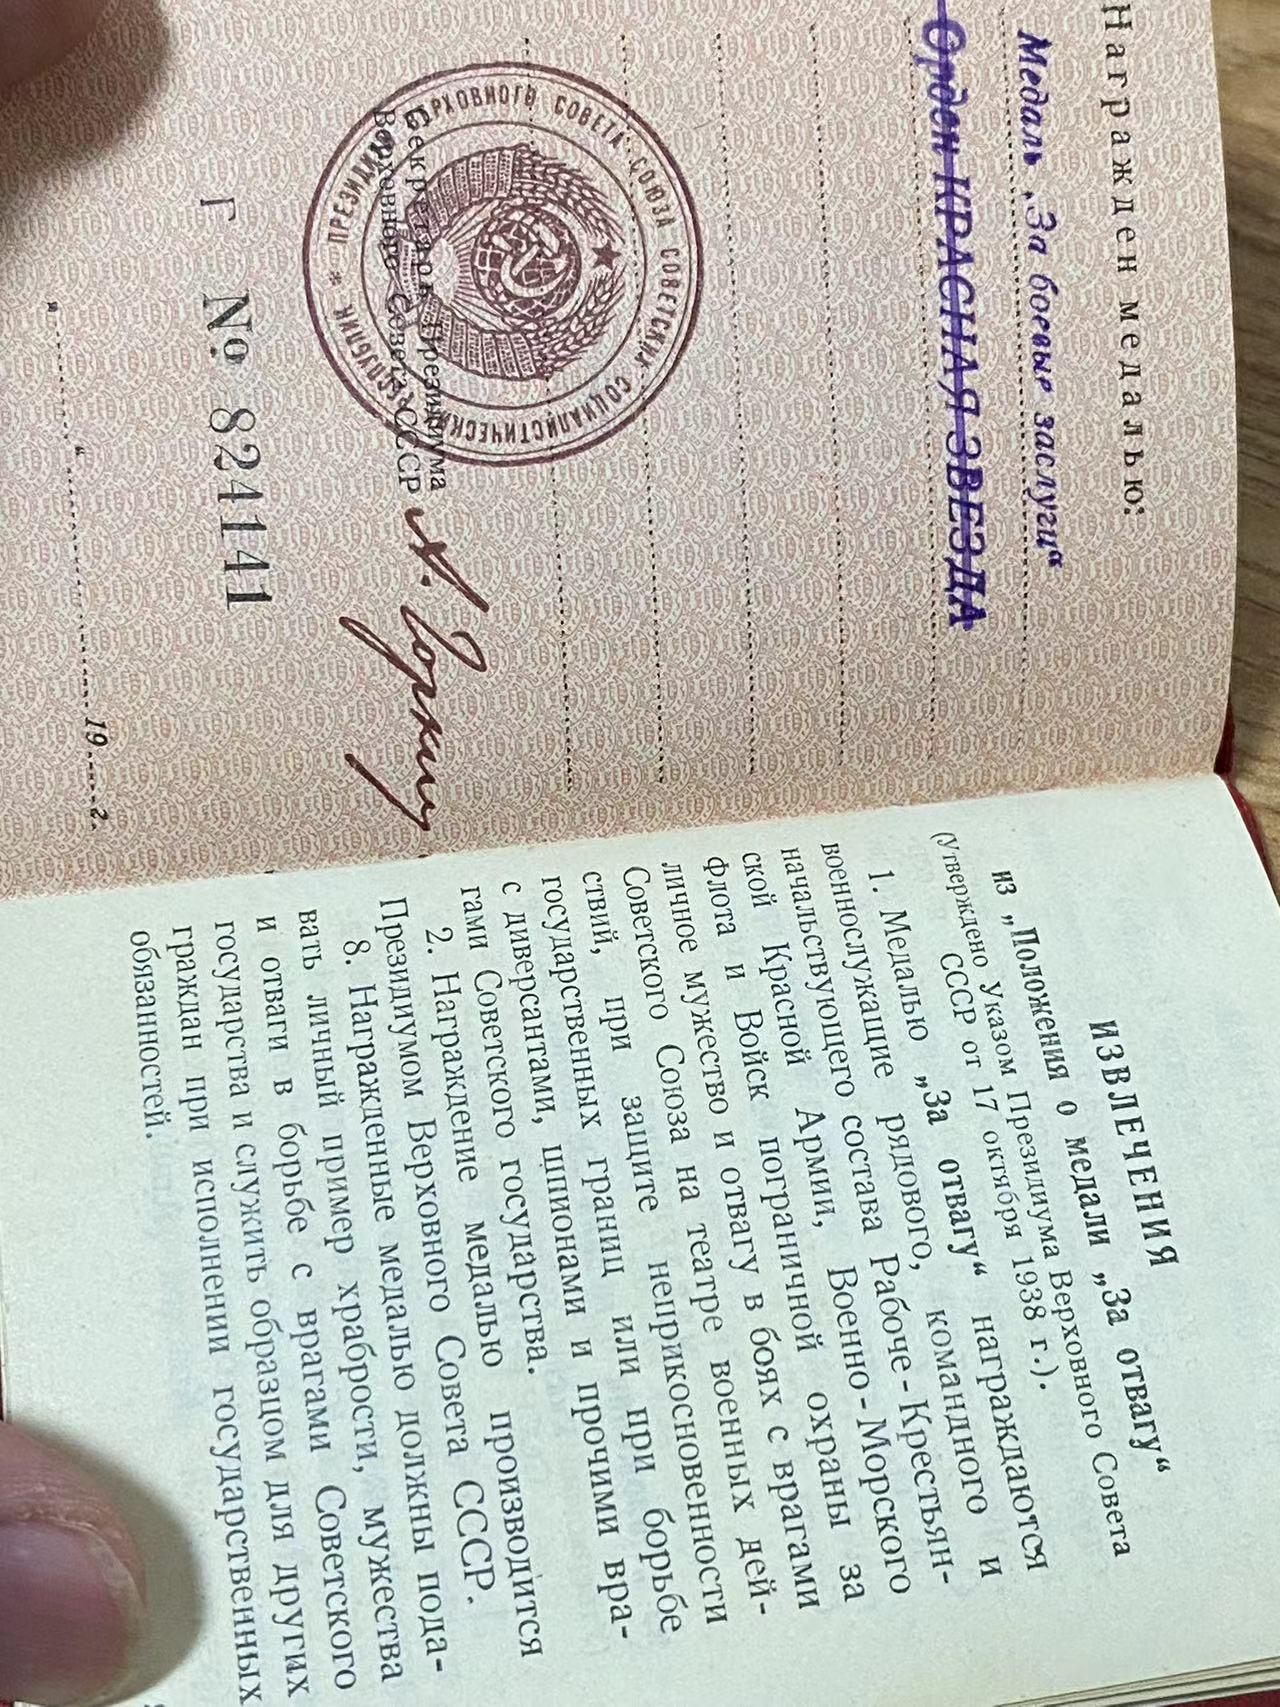 Награжден медалью:
Медаль „За боевые заслуги“
Орден КРАСНАЯ ЗВЕЗДА
ПРЕЗИДИУМ ВЕРХОВНОГО СОВЕТА СОЮЗА СОВЕТСКИХ СОЦИАЛИСТИЧЕСКИХ РЕСПУБЛИК *
Секретарь Президиума
Верховного Совета СССР
А. Горкин
Г № 824141
„ “ 19 г.
ИЗВЛЕЧЕНИЯ
из „Положения о медали „За отвагу“
(Утверждено Указом Президиума Верховного Совета
СССР от 17 октября 1938 г.).
1. Медалью „За отвагу“ награждаются
военнослужащие рядового, командного и
начальствующего состава Рабоче-Крестьян-
ской Красной Армии, Военно-Морского
флота и Войск пограничной охраны за
личное мужество и отвагу в боях с врагами
Советского Союза на театре военных дей-
ствий, при защите неприкосновенности
государственных границ или при борьбе
с диверсантами, шпионами и прочими вра-
гами Советского государства.
2. Награждение медалью производится
Президиумом Верховного Совета СССР.
8. Награжденные медалью должны пода-
вать личный пример храбрости, мужества
и отваги в борьбе с врагами Советского
государства и служить образцом для других
граждан при исполнении государственных
обязанностей.